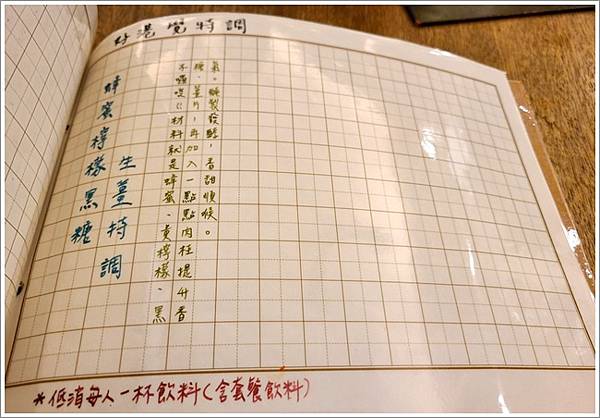 好港覺特調
蜂蜜檸檬黑糖
生薑特調
不囉唆!!材料就是蜂蜜、黃檸檬、黑
糖、薑片,再加入一點點肉桂提升香
氣。醃製發酵,香甜順喉。
*低消每人一杯飲料(含套餐飲料)